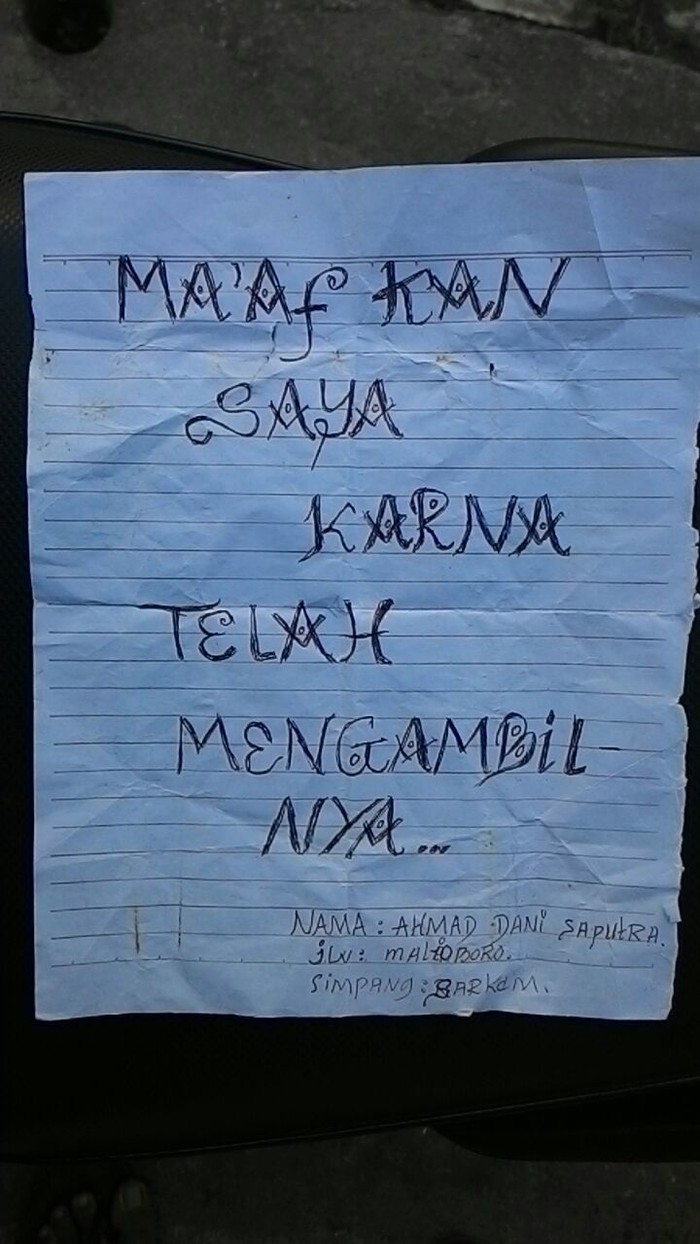 MA'AF KAN
SAYA
KARNA
TELAH
MENGAMBIL-
NYA...
NAMA : AHMAD DANI SAPUTRA.
JLN : MALIOBORO.
SIMPANG : BARKAM.